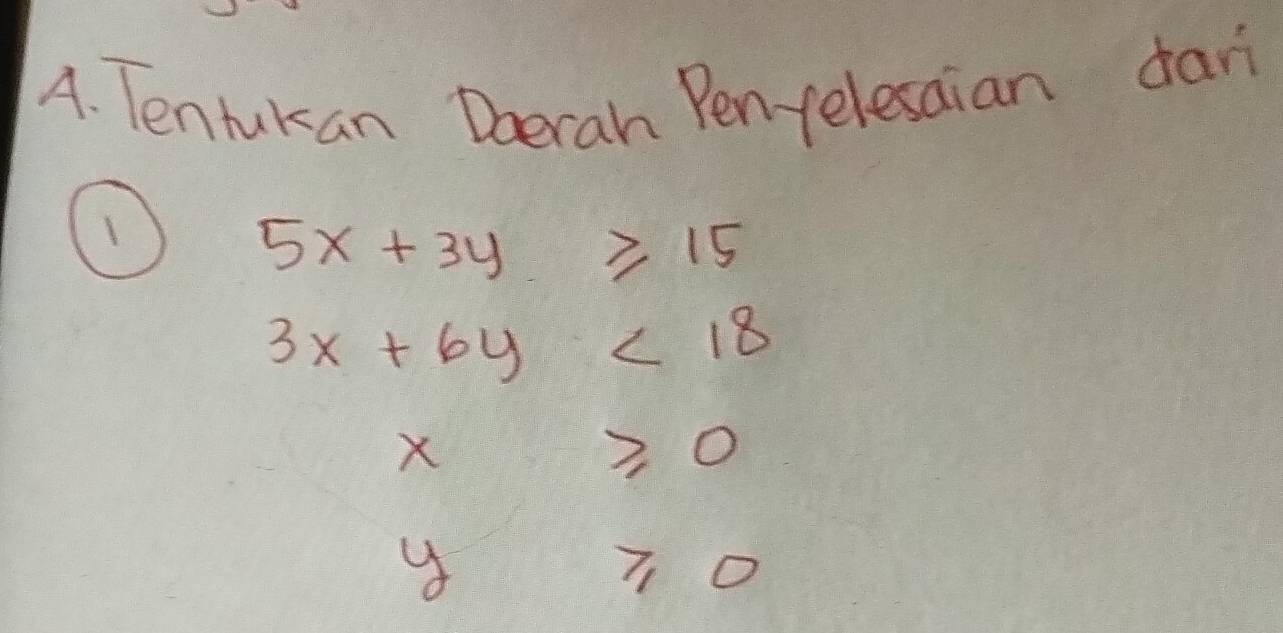 A. Tentukan Daerah Penyelesaian dari
① 5x + 3y ≥ 15
3x + 6y < 18
x ≥ 0
y ≥ 0